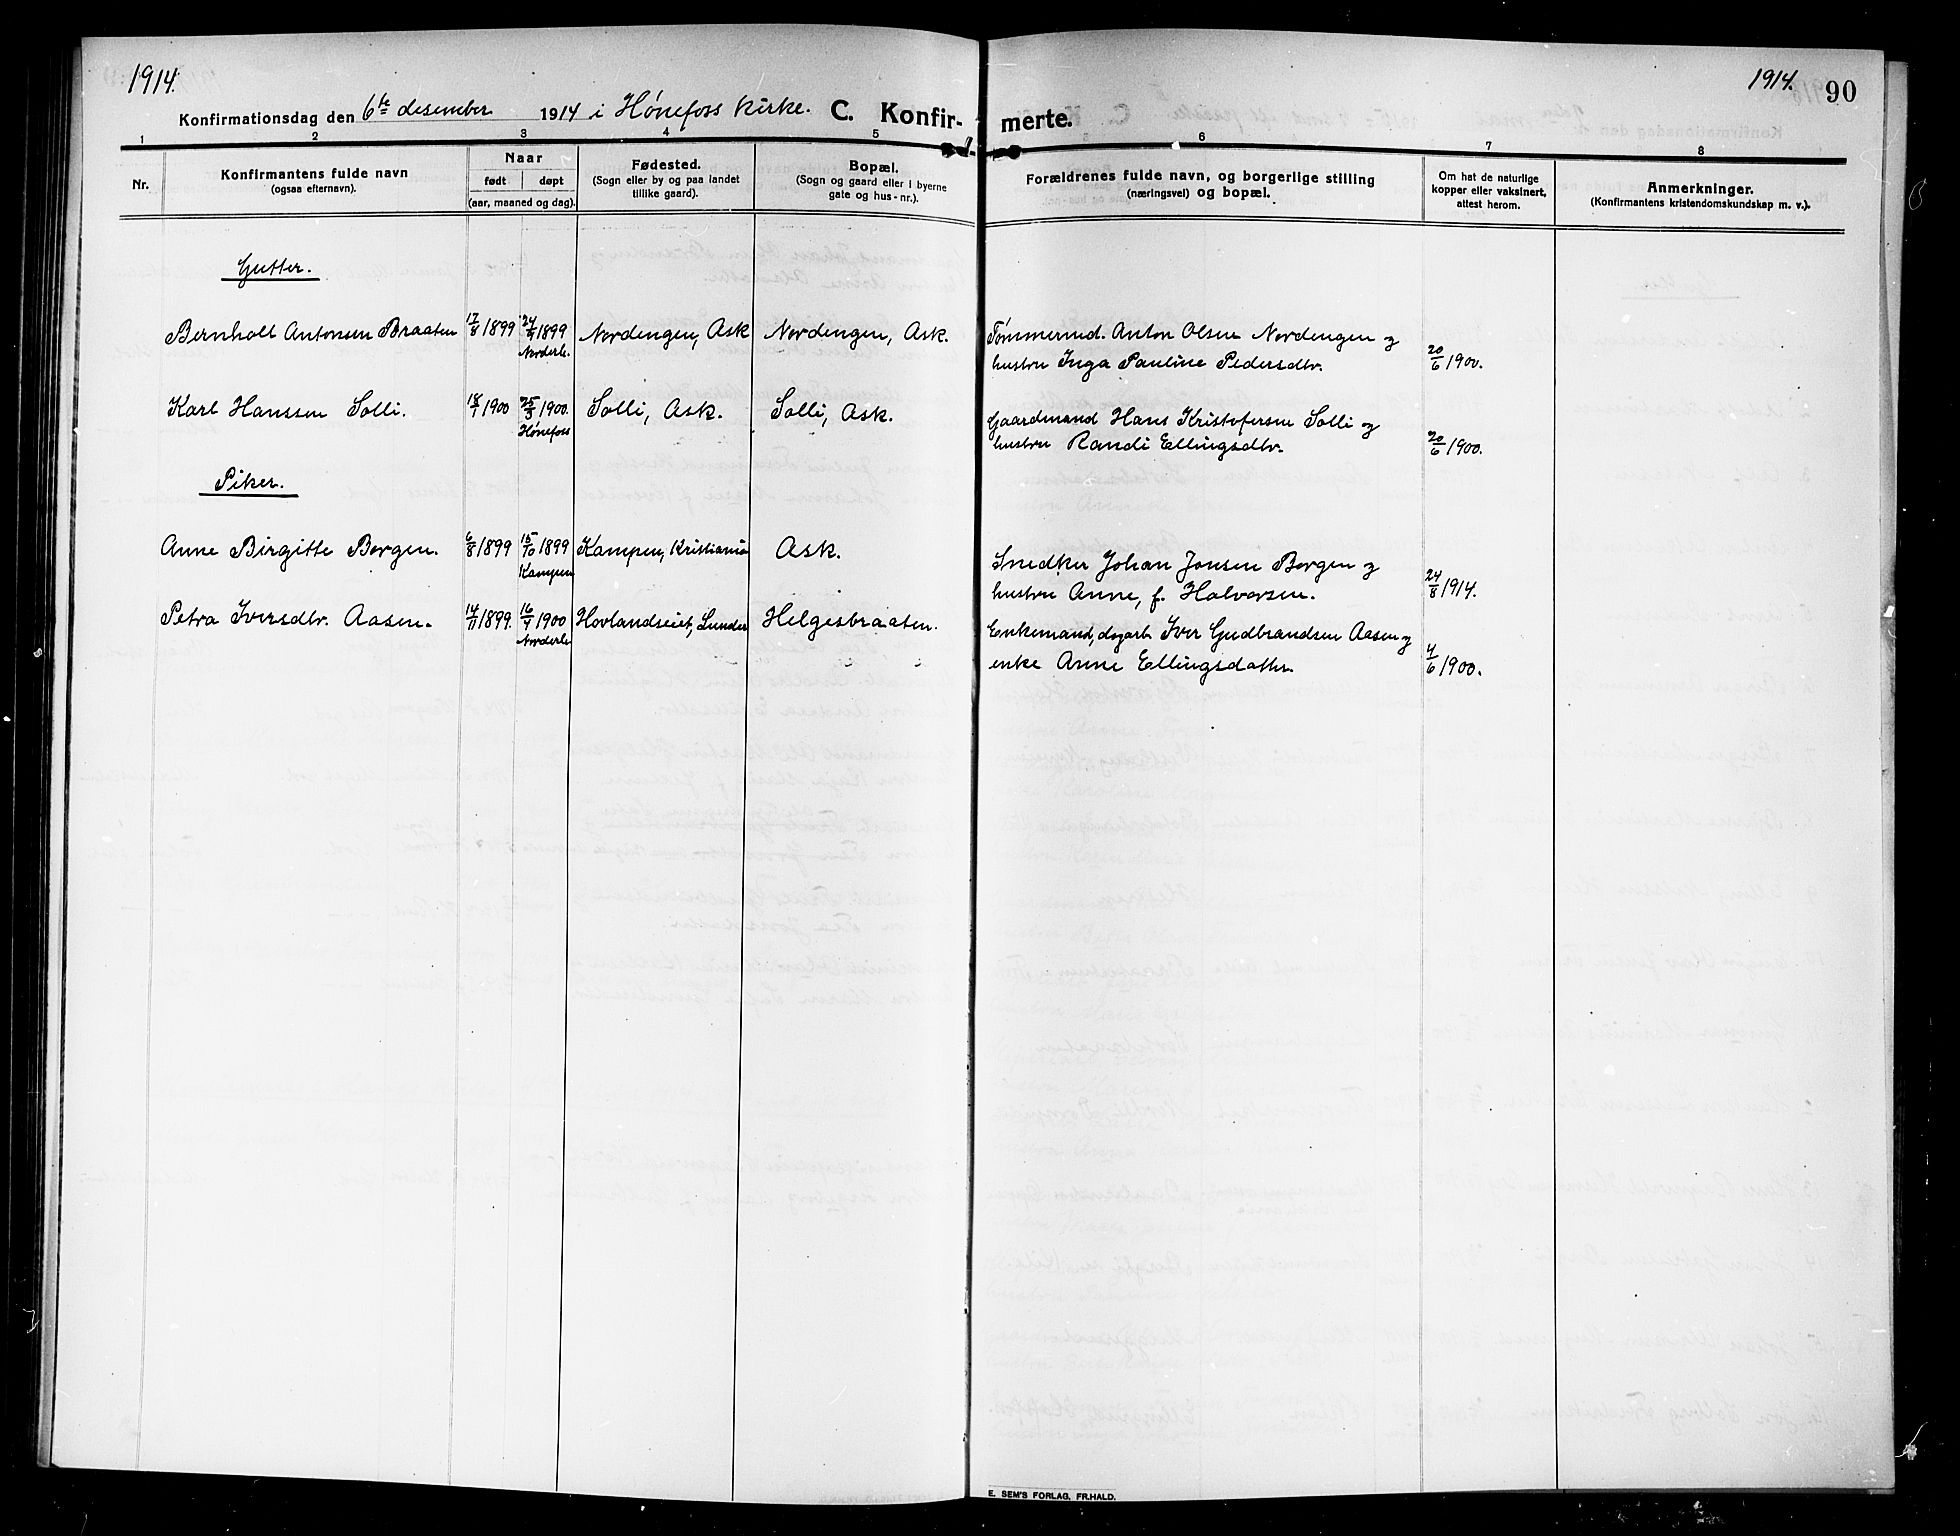 1914.
1914. 90
Konfirmationsdag den 6te desember 1914 i Hønefoss kirke. C. Konfir- merte.
1 2 3 4 5 6 7 8
Nr.
Konfirmantens fulde navn
(ogsaa efternavn).
Naar
født døpt
(aar, maaned og dag).
Fødested.
(Sogn eller by og paa landet
tillike gaard).
Bopæl.
(Sogn og gaard eller i byerne
gate og hus-nr.).
Forældrenes fulde navn, og borgerlige stilling
(næringsvei) og bopæl.
Om hat de naturlige
kopper eller vaksinert,
attest herom.
Anmerkninger.
(Konfirmantens kristendomskundskap m. v.).
Gutter.
Bernholt Antonsen Braaten 17/8 1899 24/9 1899 Nordengen, Ask Nordengen, Ask.
Norderh.
Tømmermd. Anton Olsen Nordengen og
hustru Inga Pauline Pedersdtr. 20/6 1900.
Karl Hanssen Solli. 18/1 1900 25/3 1900. Solli, Ask. Solli, Ask.
Hønefoss
Gaardmand Hans Kristofersen Solli og
hustru Randi Ellingsdtr. 20/6 1900.
Piker.
Anne Birgitte Borgen. 6/8 1899 15/10 1899 Kampen, Kristiania Ask.
Kampen
Snedker Johan Jonsen Borgen og
hustru Anne, f. Halvorsen. 24/8 1914.
Petra Iversdtr. Aasen. 14/11 1899. 16/4 1900 Hovlandseiet, Lunder Helgesbraaten.
Norderh.
Enkemand, dagarb. Iver Gudbrandsen Aasen og
enke Anne Ellingsdatter. 4/6 1900.
E. SEM'S FORLAG, FR.HALD.